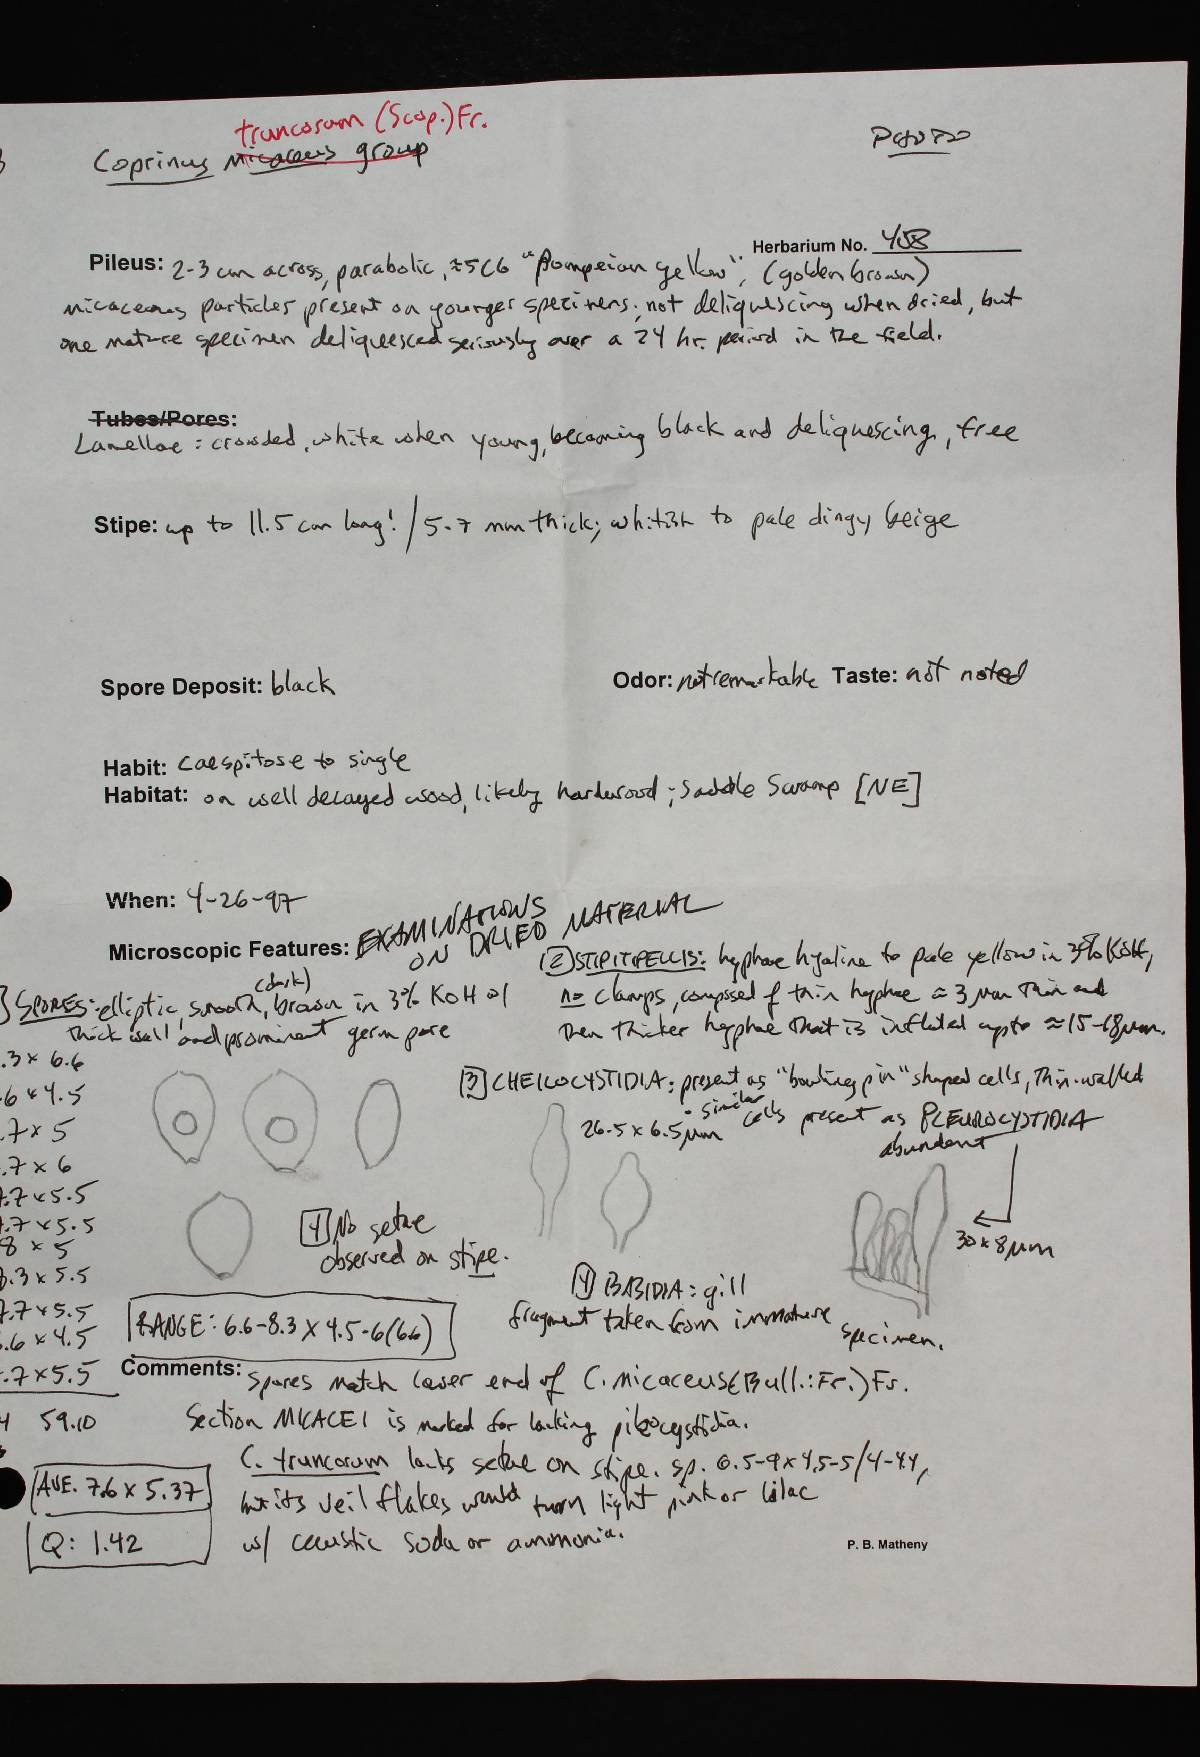 truncorum (Scop.) Fr.
Coprinus micaceus group
PHOTO
Herbarium No. 458
Pileus: 2-3 cm across, parabolic, ≈5C6 "Pompeian yellow", (golden brown)
micaceous particles present on younger specimens; not deliquescing when dried, but
one mature specimen deliquesced seriously over a 24 hr. period in the field.
Tubes/Pores:
Lamellae: crowded, white when young, becoming black and deliquescing, free
Stipe: up to 11.5 cm long! / 5-7 mm thick; whitish to pale dingy beige
Spore Deposit: black
Odor: not remarkable Taste: not noted
Habit: caespitose to single
Habitat: on well decayed wood, likely hardwood; Saddle Swamp [NE]
When: 4-26-97
Microscopic Features: EXAMINATIONS
ON DRIED MATERIAL
(dark)
SPORES: elliptic, smooth, brown in 3% KOH w/
thick wall and prominent germ pore
.3 x 6.6
.6 x 4.5
.7 x 5
.7 x 6
7.7 x 5.5
7.7 x 5.5
8 x 5
8.3 x 5.5
7.7 x 5.5
.6 x 4.5
.7 x 5.5
59.10
AVE. 7.6 x 5.37
Q: 1.42
(2) STIPITIPELLIS: hyphae hyaline to pale yellow in 3% KOH,
no clamps, composed of thin hyphae ≈ 3 µm thin and
then thicker hyphae that is inflated up to ≈ 15-18 µm.
[3] CHEILOCYSTIDIA: present as "bowling pin" shaped cells, thin-walled
26.5 x 6.5 µm • similar cells present as PLEUROCYSTIDIA
abundant
30 x 8 µm
[4] No setae
observed on stipe.
(4) BASIDIA: gill
fragment taken from immature
specimen.
RANGE: 6.6-8.3 x 4.5-6(6.6)
Comments: spores match lower end of C. micaceus (Bull.:Fr.) Fr.
Section MICACEI is marked for lacking pileocystidia.
C. truncorum lacks setae on stipe. sp. 6.5-9 x 4.5-5/4-4.4,
but its veil flakes would turn light pink or lilac
w/ caustic soda or ammonia.
P. B. Matheny